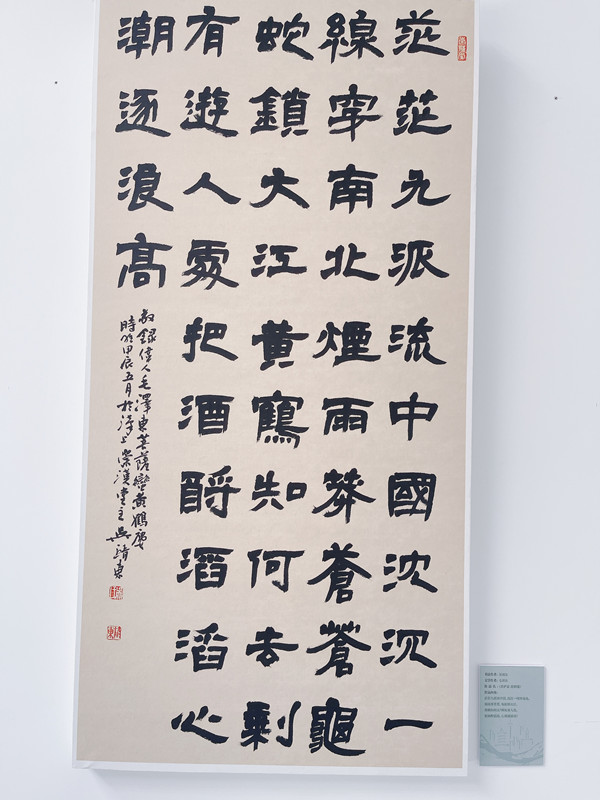 茫茫九派流中國沈沉一
線穿南北煙雨莽蒼蒼龜
蛇鎖大江黃鶴知何去剩
有遊人處把酒酹滔滔心
潮逐浪高
敬錄偉人毛澤東菩薩蠻黃鶴樓
時甲辰五月於上崇漢堂主吳東